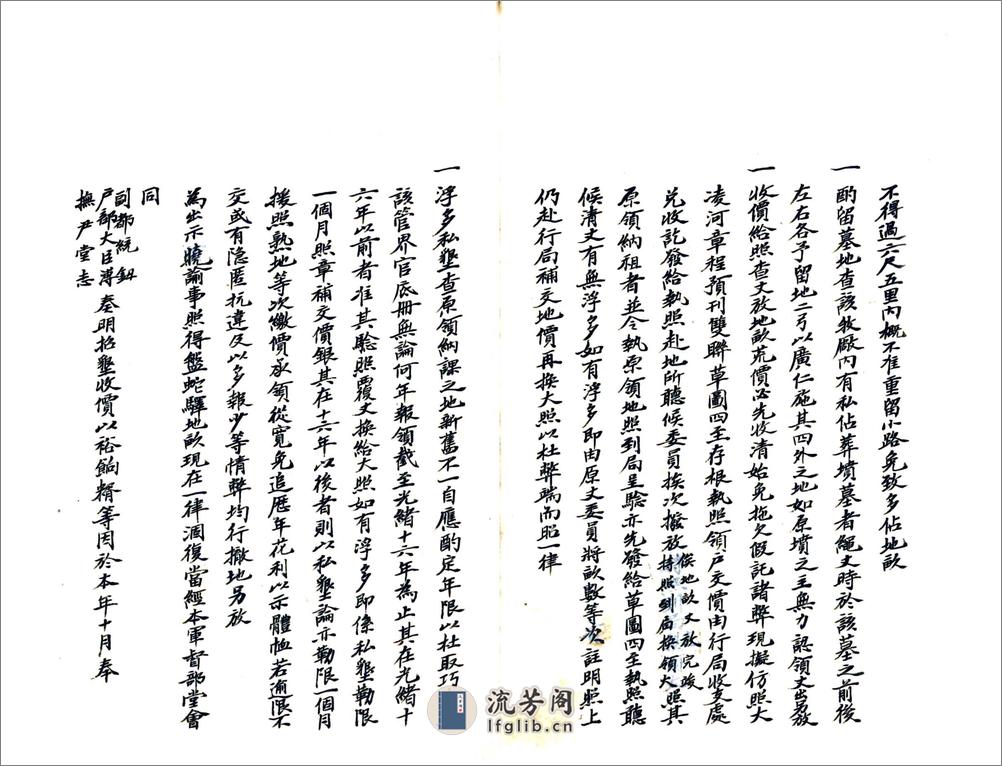 不得過六尺五里內概不准重留小路免致多佔地畝
一酌留墓地查該牧厰內有私佔葬墳墓者繩丈時於該墓之前後
左右各予留地二弓以廣仁施其四外之地如原墳之主無力認領丈出另放
一收價給照查丈放地畝荒價必先收清始免拖欠假託諸弊現擬仿照大
凌河章程預刊雙聯草圖四至存根執照領戶交價由行局收支處
兌收訖發給執照赴地所聽候委員挨次撥放俟地畝丈放完竣持照到局換領大照其
原領納祖者並令執原領地照到局呈驗亦先發給草圖四至執照聽
候清丈有無浮多如有浮多即由原丈委員將畝數等次註明照上
仍赴行局補交地價再換大照以杜弊端而昭一律
一浮多私墾查原領納課之地新舊不一自應酌定年限以杜取巧
該管界官底冊無論何年報領截至光緒十六年為止其在光緒十
六年以前者准其驗照覆丈換給大照如有浮多即係私墾勒限
一個月照章補交價銀其在十六年以後者則以私墾論亦勒限一個月
援照熟地等次繳價承領從寬免追歷年花利以示體恤若逾限不
交或有隱匿抗違及以多報少等情弊均行撤地另放
為出示曉諭事照得盤蛇驛地畝現在一律涸復當經本軍督部堂會
同
副都統鈕
戶部大臣溥
撫尹堂志
奏明招墾收價以裕餉糈等因於本年十月奉
流芳阁
lfglib.cn